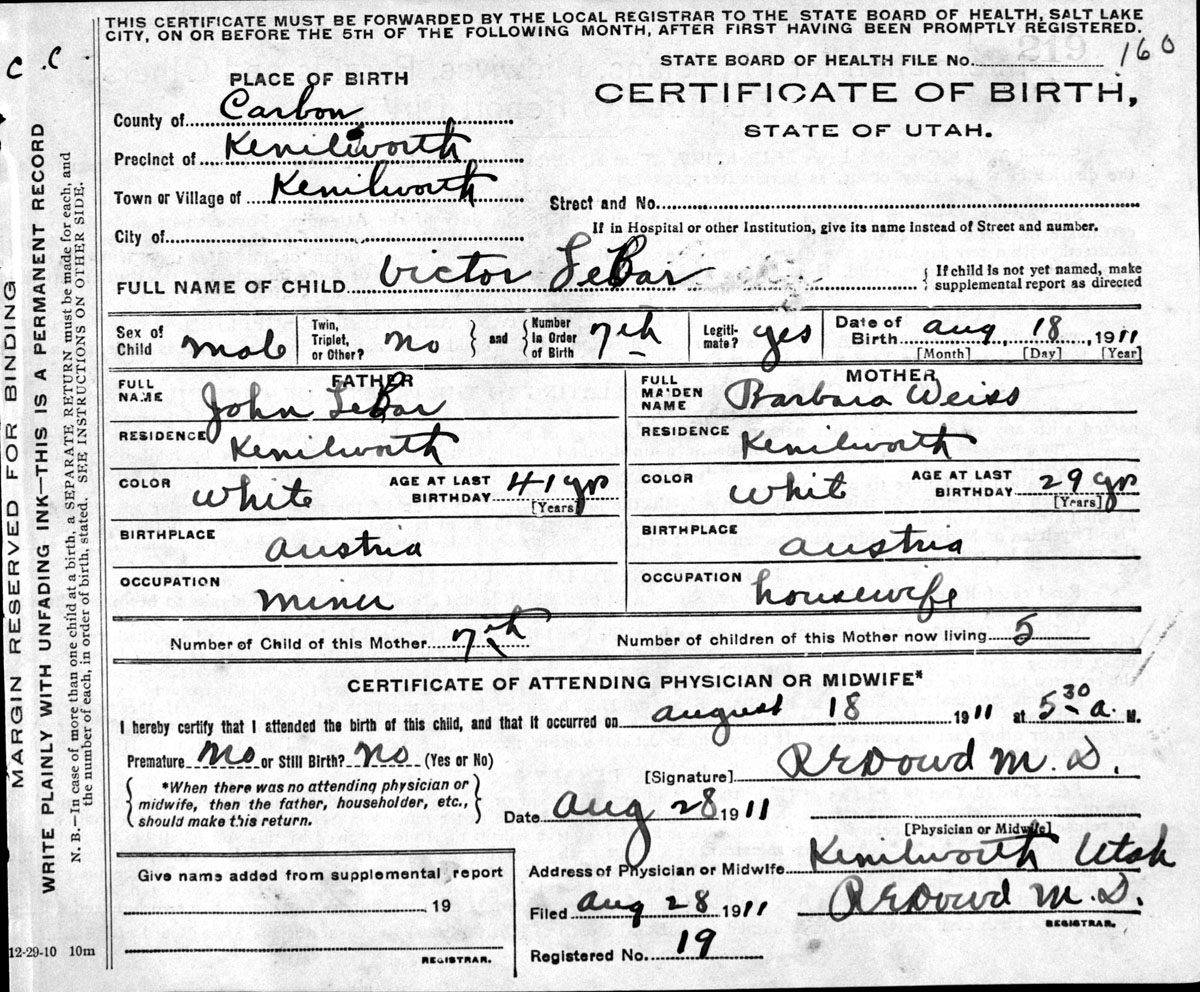 THIS CERTIFICATE MUST BE FORWARDED BY THE LOCAL REGISTRAR TO THE STATE BOARD OF HEALTH, SALT LAKE
CITY, ON OR BEFORE THE 5TH OF THE FOLLOWING MONTH, AFTER FIRST HAVING BEEN PROMPTLY REGISTERED.
C .C
STATE BOARD OF HEALTH FILE No. 160
CERTIFICATE OF BIRTH,
STATE OF UTAH.
PLACE OF BIRTH
County of Carbon
Precinct of Kenilworth
Town or Village of Kenilworth
Street and No.
City of
If in Hospital or other Institution, give its name instead of Street and number.
FULL NAME OF CHILD Victor LeBar
{ If child is not yet named, make
supplemental report as directed
Sex of Child Male
Twin, Triplet, or Other? No } and { Number in Order of Birth 7th
Legitimate? yes
Date of Birth Aug 18, 1911
[Month] [Day] [Year]
FATHER
FULL NAME John LeBar
RESIDENCE Kenilworth
COLOR White AGE AT LAST BIRTHDAY 41 yrs
[Years]
BIRTHPLACE Austria
OCCUPATION Miner
MOTHER
FULL MAIDEN NAME Barbara Weiss
RESIDENCE Kenilworth
COLOR White AGE AT LAST BIRTHDAY 29 yrs
[Years]
BIRTHPLACE Austria
OCCUPATION housewife
Number of Child of this Mother 7th Number of children of this Mother now living 5
CERTIFICATE OF ATTENDING PHYSICIAN OR MIDWIFE*
I hereby certify that I attended the birth of this child, and that it occurred on August 18 1911 at 5 30 a. M.
Premature No or Still Birth? No (Yes or No)
{ *When there was no attending physician or
midwife, then the father, householder, etc.,
should make this return. }
[Signature] R E Dowd M.D.
Date Aug 28 1911
[Physician or Midwife]
Address of Physician or Midwife Kenilworth Utah
Filed Aug 28 1911 R E Dowd M.D.
REGISTRAR.
Registered No. 19
Give name added from supplemental report
19
REGISTRAR.
12-29-10 10m
MARGIN RESERVED FOR BINDING
WRITE PLAINLY WITH UNFADING INK—THIS IS A PERMANENT RECORD
N. B.—In case of more than one child at a birth, a SEPARATE RETURN must be made for each, and
the number of each, in order of birth, stated. SEE INSTRUCTIONS ON OTHER SIDE.